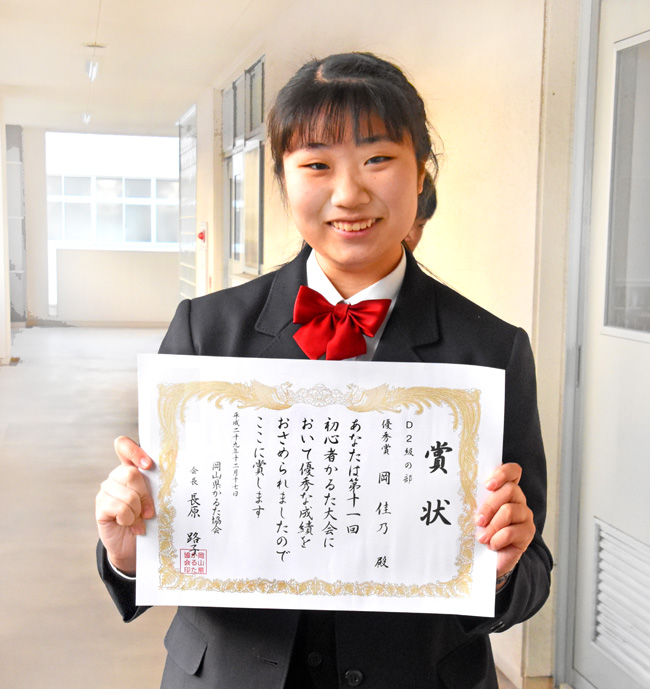 賞状
D2級の部
優秀賞 岡 佳乃 殿
あなたは第十一回
初心者かるた大会に
おいて優秀な成績を
おさめられましたので
ここに賞します
平成二十九年十二月十七日
岡山県かるた協会
会長 長原 路子
岡山県
かるた
協会印